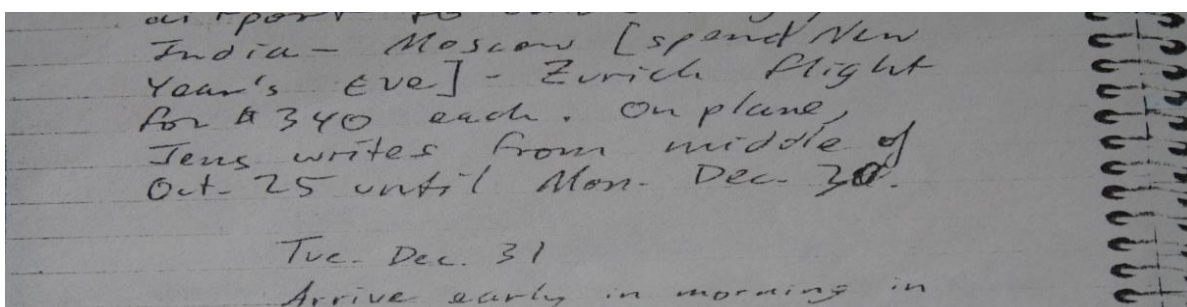 airport to
India - Moscow [spend New
Year's Eve] - Zurich flight
for $340 each. On plane,
Jens writes from middle of
Oct. 25 until Mon. Dec. 30.
Tue. Dec. 31
Arrive early in morning in